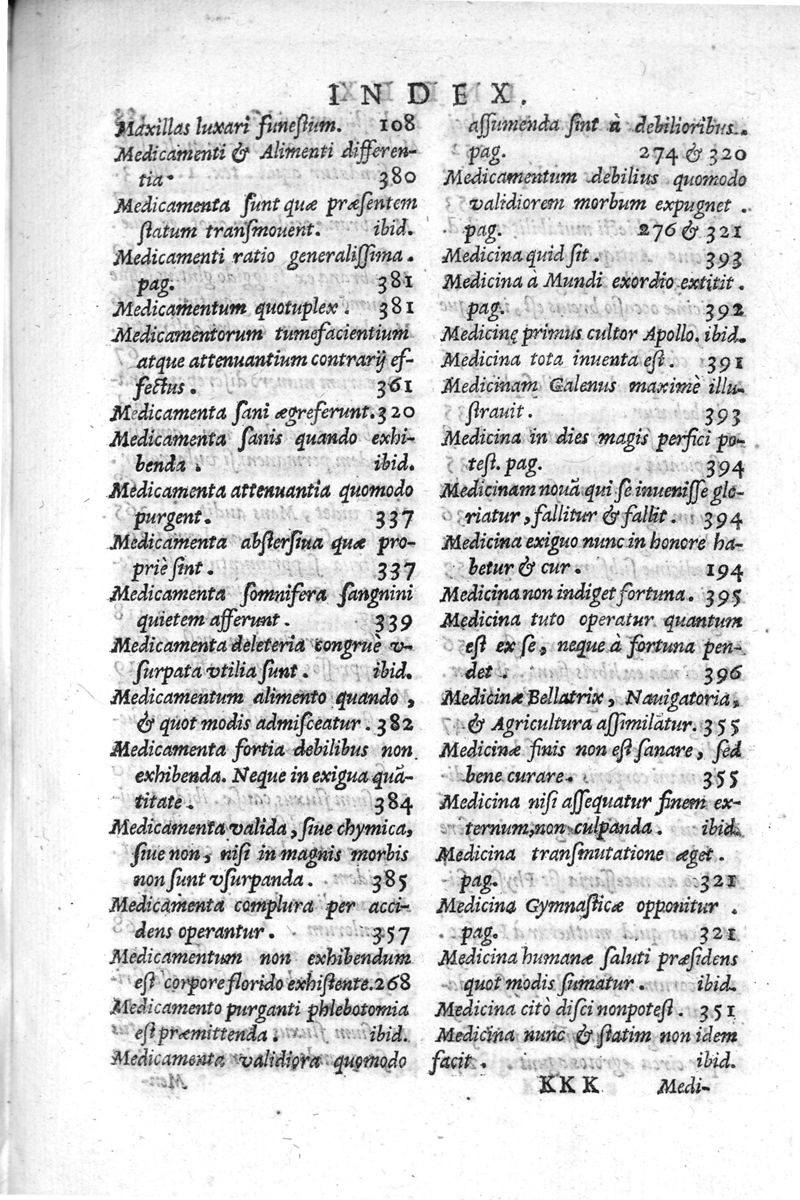 INDEX.
Maxillas luxari funestum. 108
Medicamenti & Alimenti differen-
tia. 380
Medicamenta sunt quæ præsentem
statum transmouent. ibid.
Medicamenti ratio generalissima.
pag. 381
Medicamentum quotuplex. 381
Medicamentorum tumefacientium
atque attenuantium contrarij ef-
fectus. 361
Medicamenta sani ægreferunt. 320
Medicamenta sanis quando exhi-
benda. ibid.
Medicamenta attenuantia quomodo
purgent. 337
Medicamenta abstersiua quæ pro-
priè sint. 337
Medicamenta somnifera sangnini
quietem afferunt. 339
Medicamenta deleteria congruè v-
surpata vtilia sunt. ibid.
Medicamentum alimento quando,
& quot modis admisceatur. 382
Medicamenta fortia debilibus non
exhibenda. Neque in exigua quã-
titate. 384
Medicamenta valida, siue chymica,
siue non, nisi in magnis morbis
non sunt vsurpanda. 385
Medicamenta complura per acci-
dens operantur. 357
Medicamentum non exhibendum
est corpore florido exhistente. 268
Medicamento purganti phlebotomia
est præmittenda. ibid.
Medicamenta validiora quomodo
assumenda sint à debilioribus.
pag. 274 & 320
Medicamentum debilius quomodo
validiorem morbum expugnet.
pag. 276 & 321
Medicina quid sit. 393
Medicina à Mundi exordio extitit.
pag. 392
Medicinę primus cultor Apollo. ibid.
Medicina tota inuenta est. 391
Medicinam Galenus maximè illu-
strauit. 393
Medicina in dies magis perfici po-
test. pag. 394
Medicinam nouã qui se inuenisse glo-
riatur, fallitur & fallit. 394
Medicina exiguo nunc in honore ha-
betur & cur. 194
Medicina non indiget fortuna. 395
Medicina tuto operatur quantum
est ex se, neque à fortuna pen-
det. 396
Medicinæ Bellatrix, Nauigatoria,
& Agricultura assimilãtur. 355
Medicinæ finis non est sanare, sed
bene curare. 355
Medicina nisi assequatur finem ex-
ternum, non culpanda. ibid.
Medicina transmutatione æget.
pag. 321
Medicina Gymnasticæ opponitur.
pag. 321
Medicina humanæ saluti præsidens
quot modis sumatur. ibid.
Medicina citò disci non potest. 351
Medicina nunc & statim non idem
facit. ibid.
KKK Medi-